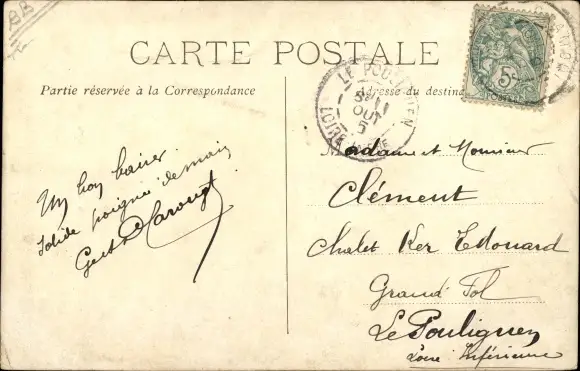 BB
CARTE POSTALE
Partie réservée à la Correspondance
Adresse du destina
LE POULIGUEN
OUT
LOIRE
5
Un bon baiser
solide poignée de main
Madame et Monsieur
Clément
Chalet Ker Edouard
Grand
Le Pouliguen
Loire Inférieure